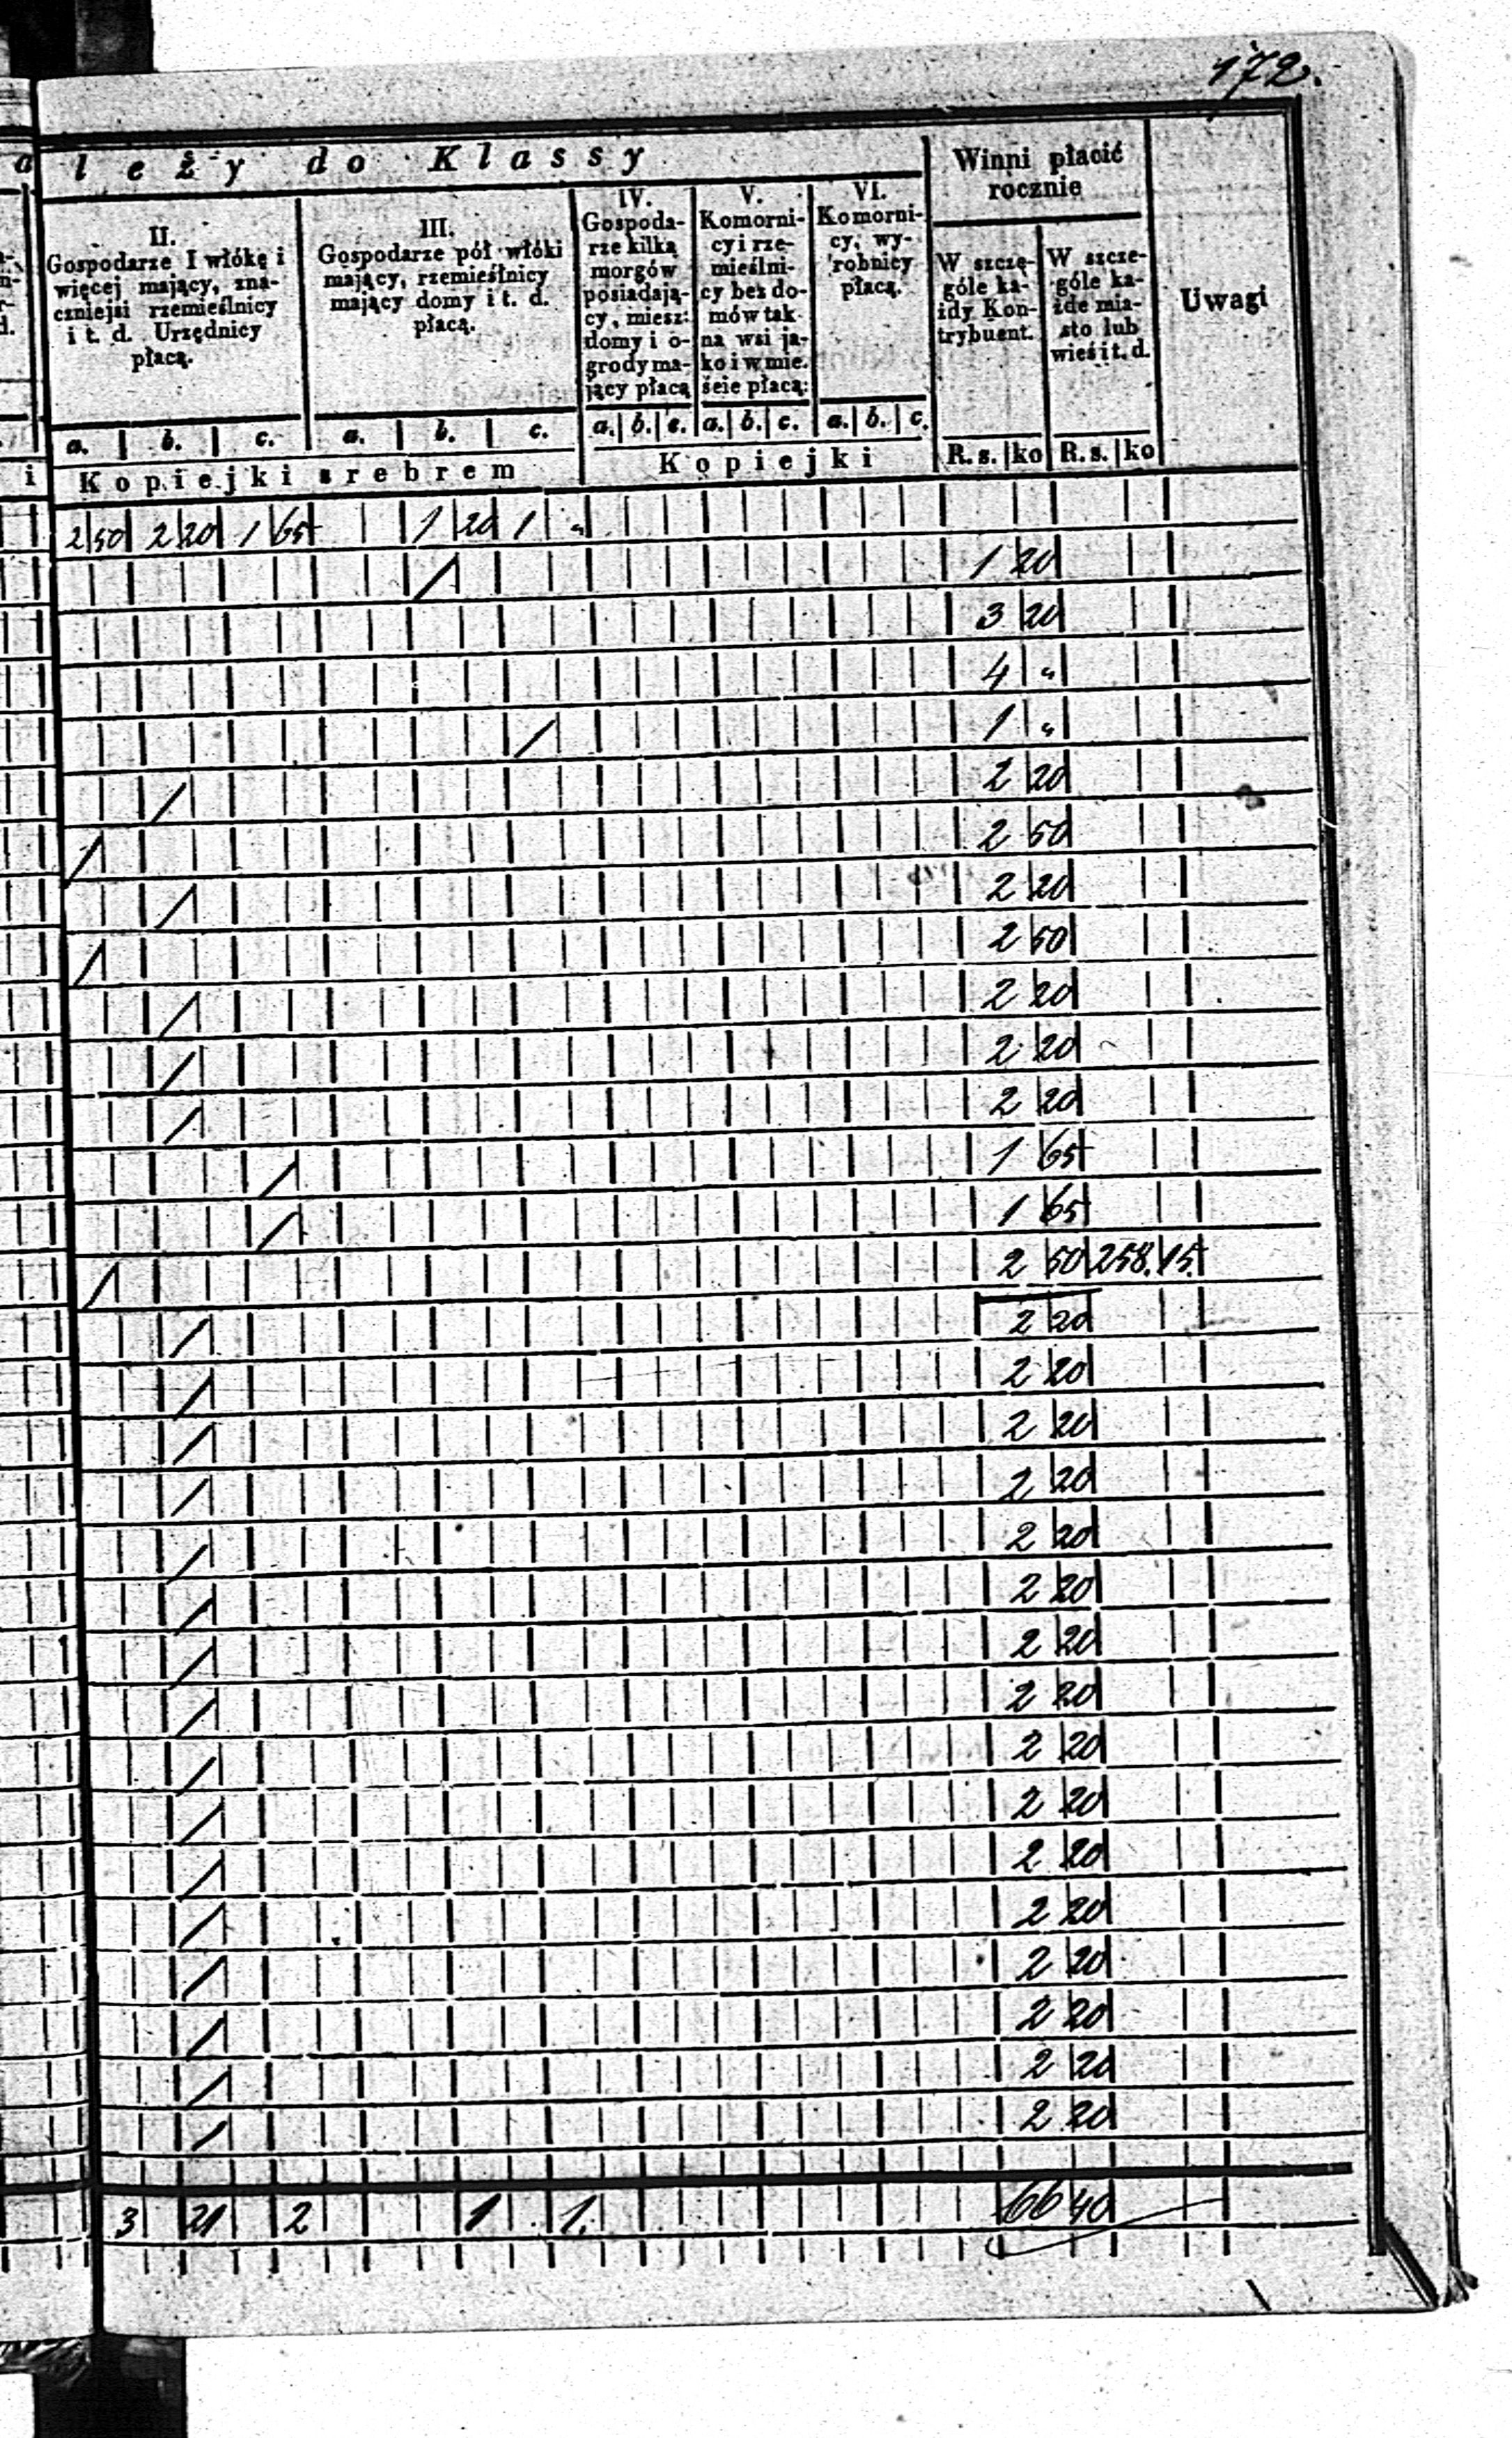 172.
a l e ż y do Klassy
Winni płacić rocznie
Uwagi
II.
Gospodarze I włókę i
więcej mający, zna-
czniejsi rzemieślnicy
i t. d. Urzędnicy
płacą.
III.
Gospodarze pół włóki
mający, rzemieślnicy
mający domy i t. d.
płacą.
IV.
Gospoda-
rze kilka
morgów
posiadają-
cy, miesz:
domy i o-
grody ma-
jący płacą
V.
Komorni-
cy i rze-
mieślni-
cy bez do-
mów tak
na wsi ja-
ko i w mie.
ście płacą:
VI.
Komorni-
cy, wy-
robnicy
płacą.
W szcze-
góle ka-
żdy Kon-
trybuent.
W szcze-
góle ka-
żde mia-
sto lub
wieś i t. d.
a. b. c. a. b. c. a. b. c. a. b. c. a. b. c.
i Kopiejki srebrem Kopiejki R. s. ko R. s. ko
2 50 2 20 1 65 1 20 1 "
/ 1 20
3 20
4 "
/ 1 "
/ 2 20
/ 2 50
/ 2 20
/ 2 50
/ 2 20
/ 2 20
/ 2 20
/ 1 65
/ 1 65
/ 2 50 258. 15.
/ 2 20
/ 2 20
/ 2 20
/ 2 20
/ 2 20
/ 2 20
/ 2 20
/ 2 20
/ 2 20
/ 2 20
/ 2 20
/ 2 20
/ 2 20
/ 2 20
/ 2 20
/ 2 20
3 21 2 1 1. 66 40